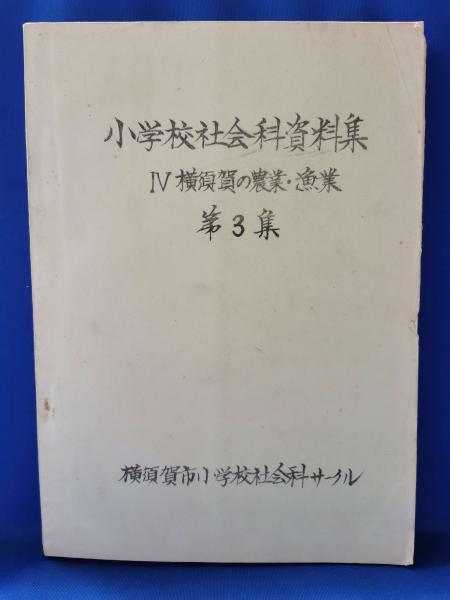 小学校社会科資料集
Ⅳ 横須賀の農業・漁業
第3集
横須賀市小学校社会科サークル